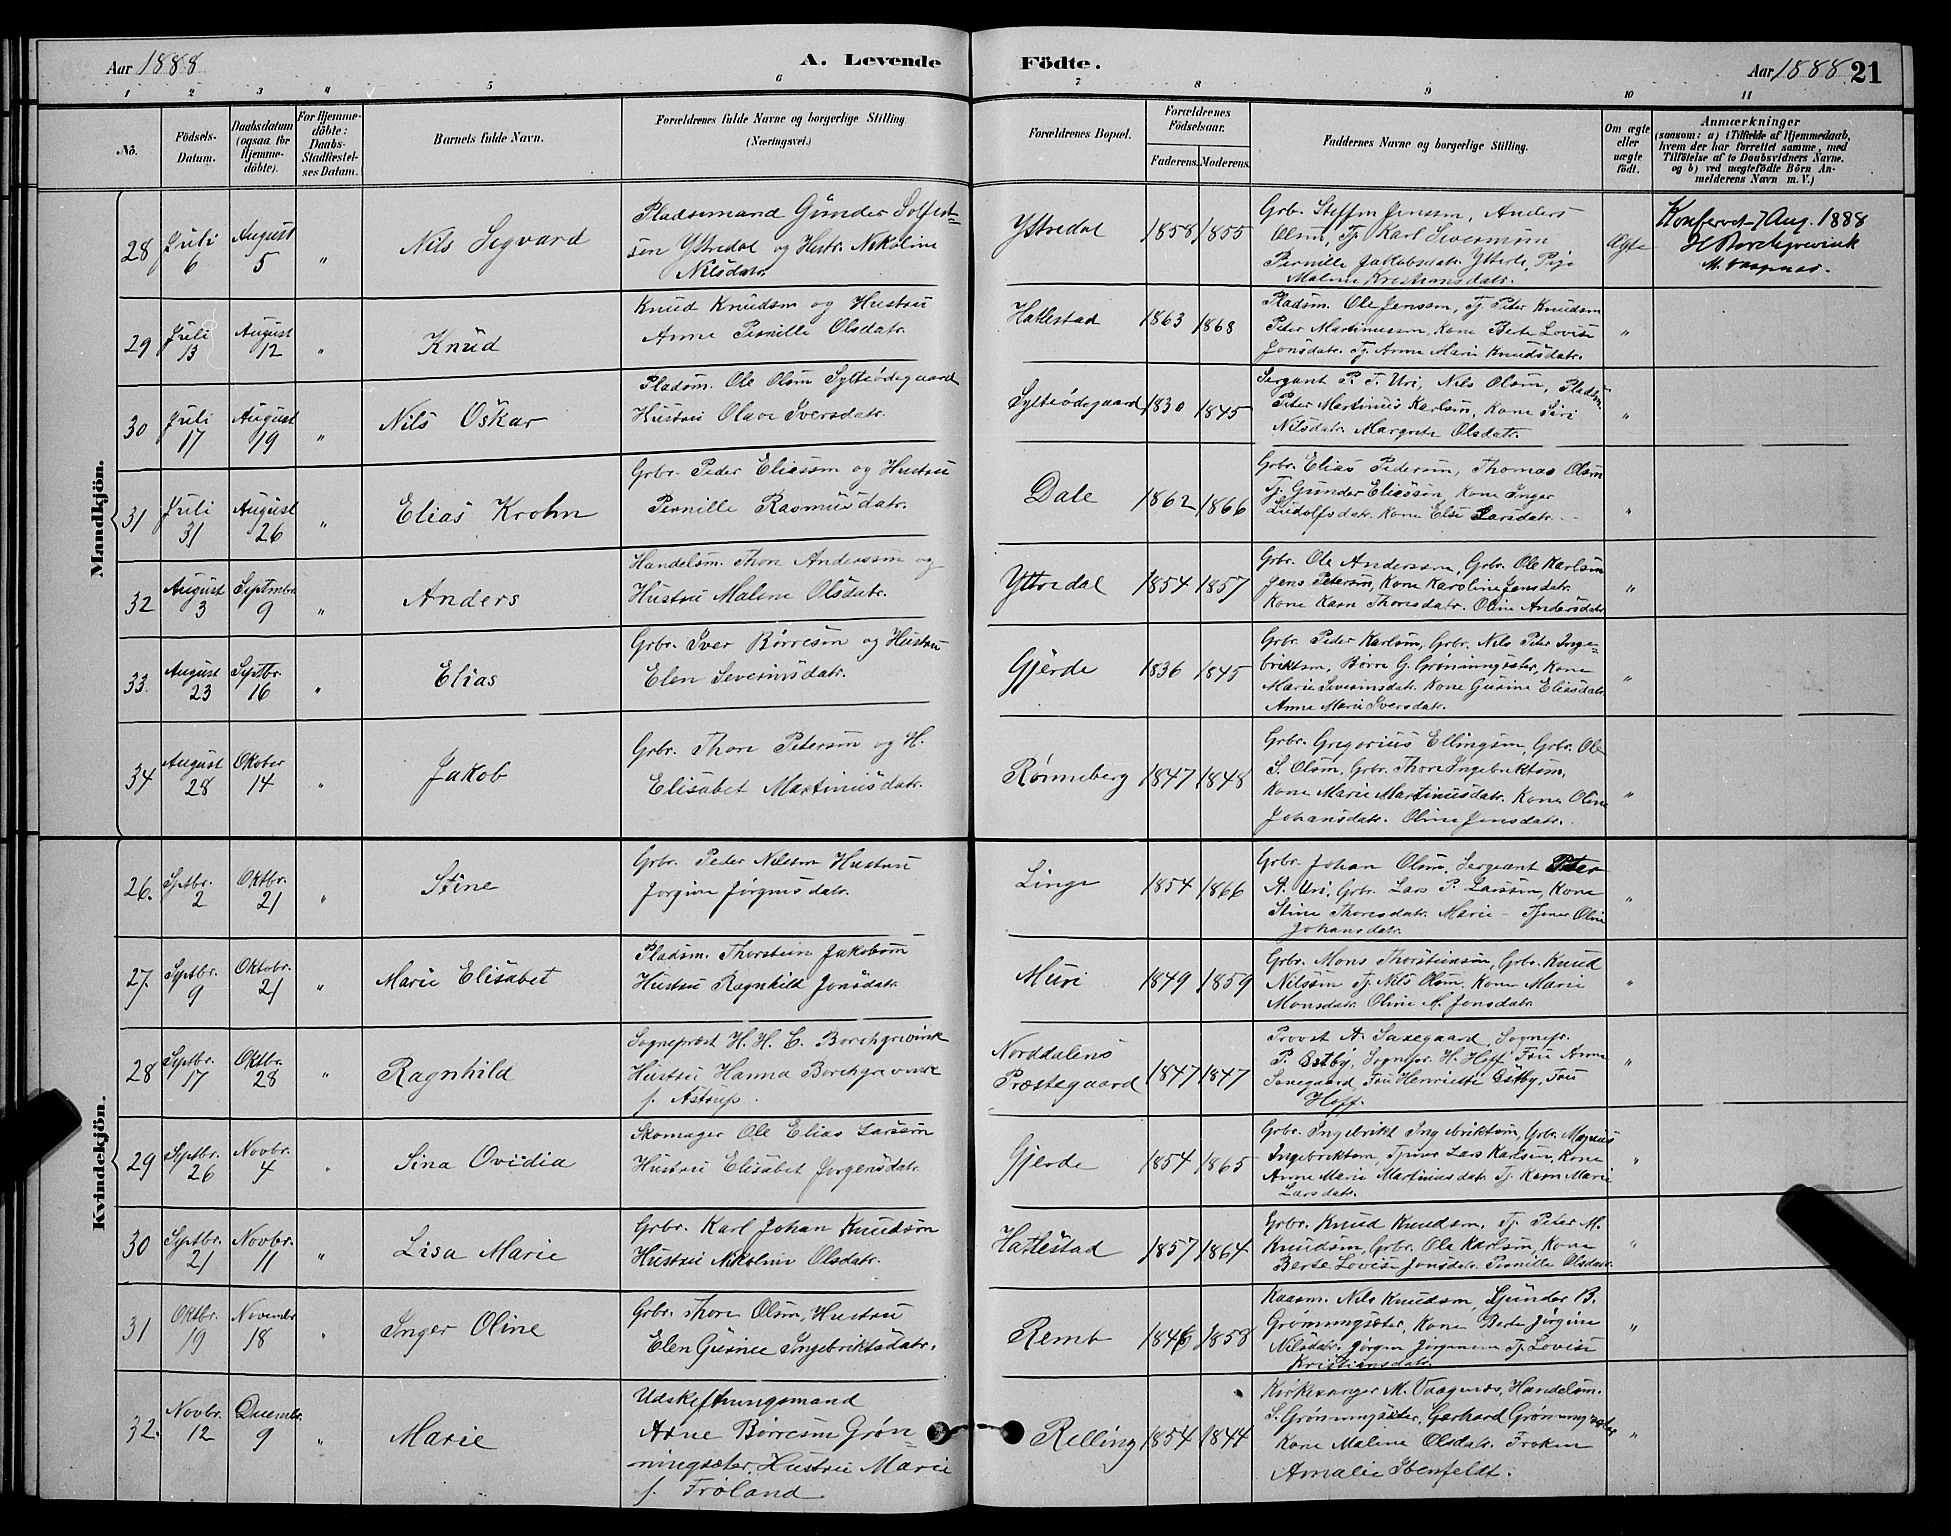 Aar 1888
A. Levende Födte.
Aar 1888 21
1 2 3 4 5 6 7 8 9 10 11
No.
Födsels-Datum.
Daabsdatum (ogsaa for Hjemme-döbte).
For Hjemme-döbte: Daabs-Stadfæstel-ses Datum.
Barnets fulde Navn.
Forældrenes fulde Navne og borgerlige Stilling (Næringsvei.)
Forældrenes Bopæl.
Forældrenes Födselsaar.
Faderens. Moderens.
Faddernes Navne og borgerlige Stilling.
Om ægte eller uægte födt.
Anmærkninger
(saasom: a) i Tilfælde af Hjemmedaab,
hvem der har forrettet samme, med
Tilföielse af to Daabsvidners Navne.
og b) ved uægtefödte Börn An-
melderens Navn m. V.)
Mandkjön.
28 Juli 6 August 5 " Nils Sigvard
Pladsemand Gunder Solfest-
sen Ytredal og Hustr. Nikoline
Nilsdatr.
Ytredal 1858 1855
Grb. Steffen Jenssen, Anders
Olsen, Tj. Karl Severinsen
Pernille Jakobsdatr. Ytterli, Pige
Malene Kristiansdatr.
Ægte
Konfervet 7 Aug. 1888
H Borchgrevink
M. Vaagenæs.
29 Juli 13 August 12 " Knud
Knud Knudsen og Hustru
Anne Pernille Olsdatr.
Hatlestad 1863 1868
Pladsm. Ole Jenssen, Tj. Peter Knudsen
Peter Martinussen, Kone Berte Lovise
Jonsdatr. Tj. Anne Marie Knudsdatr.
"
30 Juli 17 August 19 " Nils Oskar
Pladsm. Ole Olsen Sylteödegaard
Hustru Olave Iversdatr.
Sylteödegaard 1830 1845
Sergant P. T. Uri, Nils Olsen, Pladsm.
Peter Martinus Karlsen, Kone Siri
Nilsdatr. Margrete Olsdatr.
"
31 Juli 31 August 26 " Elias Krohn
Grbr. Peder Eliassen og Hustru
Pernille Rasmusdatr.
Dale 1862 1866
Grbr. Elias Pedersen, Thomas Olsen
Tj. Gunder Eliassen, Kone Inger
Ludolfsdatr. Kone Else Larsdatr.
"
32 August 3 Septmbr. 9 " Anders
Handelsm. Thore Anderssen og
Hustru Malene Olsdatr.
Yttredal 1854 1857
Grbr. Ole Anderssen, Grbr. Ole Karlsen
Jens Petersen, Kone Karoline Jensdatr.
Kone Karen Thoresdatr. Oline Andersdatr.
"
33. August 23 Septbr. 16 " Elias
Grbr. Iver Børresen og Hustru
Elen Severinsdatr.
Gjerde 1836 1845
Grbr. Peder Karlsen, Grbr. Nils Peter Inge-
briktsen, Børre G. Grønningsæter, Kone
Marie Severinsdatr. Kone Gurine Eliasdatr.
Anne Marie Iversdatr.
"
34 August 28 Oktober 14 " Jakob
Grbr. Thore Petersen og H.
Elisabet Martinusdatr.
Rønneberg 1847 1848
Grbr. Gregorius Ellingsen, Grbr. Ole
S. Olsen, Grbr. Thore Ingebriktsen,
Kone Marie Martinusdatr. Kone Oline
Johansdatr. Oline Jensdatr.
"
Kvindekjön.
26. Septbr. 2 Oktbr. 21 " Stine
Grbr. Peder Nilssen Hustru
Jørgine Jørgensdatr.
Linge 1854 1866
Grbr. Johan Olsen, Sergeant Peter
A. Uri, Grbr. Lars P. Larssen, Kone
Stine Thoresdatr. Marie - Tjener Oline
Johansdatr.
"
27. Septbr. 9 Oktobr. 21 " Marie Elisabet
Pladsm. Thorstein Jakobsen
Hustru Ragnhild Jonsdatr.
Muri 1849 1859
Grbr. Mons Thorsteinsen, Grbr. Knud
Nilssen Tj. Nils Olsen, Kone Marie
Monsdatr. Oline M. Jonsdatr.
"
28 Septbr. 17 Oktbr. 28 " Ragnhild
Sogneprest H. H. C. Borchgrevink
Hustru Hanna Borchgrevink
f. Astrup.
Norddalens
Præstegaard 1847 1847
Provst A. Saxegaard, Sognepr.
P. Østby, Sognepr. H. Hoff, Fru Anna
Saxegaard, Fru Henriette Østby, Fru
Hoff.
"
29 Septbr. 26 Novbr. 4 " Sina Ovidia
Skomager Ole Elias Larssen
Hustru Elisabet Jørgensdatr.
Gjerde 1854 1865
Grbr. Ingebrikt Ingebriktsen, Grbr. Magnus
Ingebriktsen Tjener Lars Karlsen, Kone
Anne Marie Martinusdatr. Tj. Karen Marie
Larsdatr.
"
30 Septbr. 21 Novbr. 11 " Lisa Marie
Grbr. Karl Johan Knudsen
Hustru Nikoline Olsdatr.
Hatlestad 1857 1864
Grbr. Knud Knudsen, Tj. Peter M.
Knudsen, Grbr. Ole Karlsen, Kone
Berte Lovise Jonsdatr. Pernille Olsdatr.
"
31 Oktbr. 19 November 18 " Inger Oline
Grbr. Thore Olsen, Hustru
Elen Gurine Ingebriktsdatr.
Remb 1846 1858
Kaarm. Nils Knudsen, Gunder B.
Grønningsæter, Kone Berte Jørgine
Nilsdatr. Jørgen Jørgensen Tj. Lovise
Kristiansdatr.
"
32. Novbr. 12 Decembr. 9 " Marie
Udskiftningsmand
Arne Børresen Grøn-
ningsæter, Hustru Marie
f. Frøland
Relling 1854 1844
Kirkesanger M. Vaagenæs, Handelsm.
S. Grønningsæter, Gerhard Grønningsæter
Kone Malene Olsdatr. Frøken
Amalie Ibenfeldt.
"